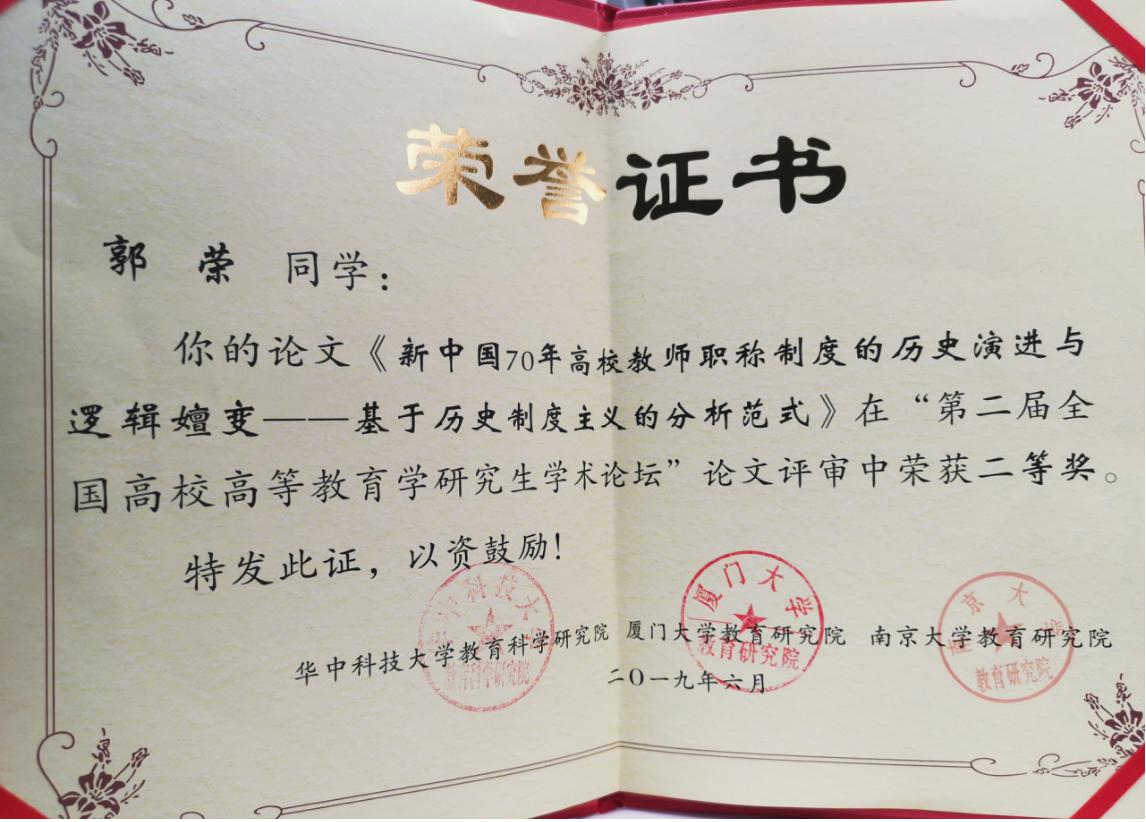 荣誉证书
郭 荣 同学：
你的论文《新中国70年高校教师职称制度的历史演进与
逻辑嬗变——基于历史制度主义的分析范式》在“第二届全
国高校高等教育学研究生学术论坛”论文评审中荣获二等奖。
特发此证，以资鼓励！
华中科技大学教育科学研究院 厦门大学教育研究院 南京大学教育研究院
二〇一九年六月
华中科技大学
教育科学研究院
厦门大学
教育研究院
南京大学
教育研究院